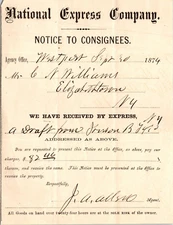 National Express Company.
NOTICE TO CONSIGNEES.
Agency Office, Westport Sept 30 1874
Mr. C N Williams
Elizabethtown
NY
WE HAVE RECEIVED BY EXPRESS,
a Draft from
ADDRESSED AS ABOVE.
You are requested to present this Notice at the Office, or alter, pay our
charges, $
thereon, and remove the same. This Notice must be presented at the Office
to receive the property.
Respectfully,
Agent.
All Goods on hand over twenty-four hours are at the sole risk of the owner.